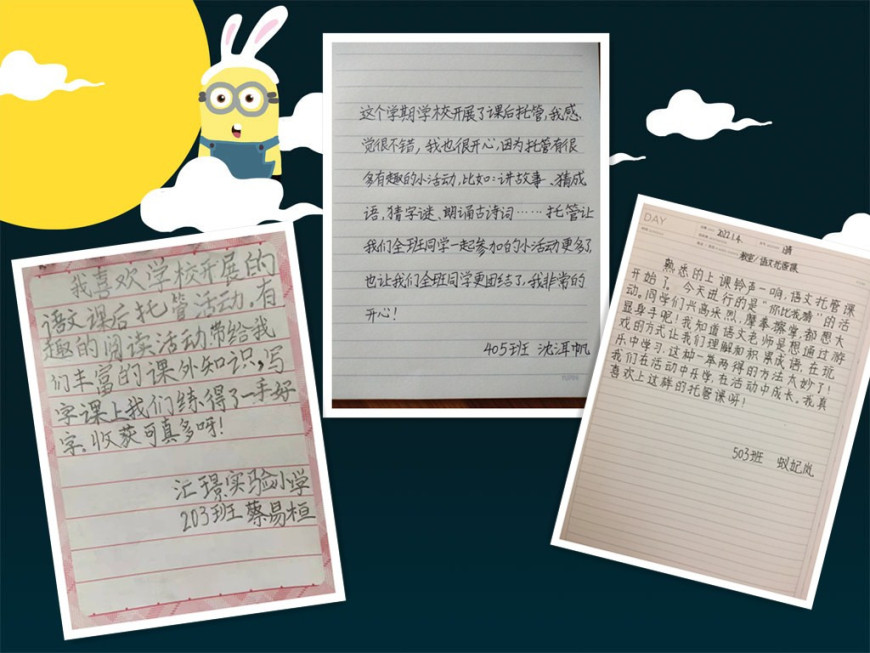 我喜欢学校开展的
语文课后托管活动。有
趣的阅读活动带给我
们丰富的课外知识,写
字课上我们练得了一手好
字,收获可真多呀!
汇璟实验小学
203班 蔡易桓
这个学期学校开展了课后托管,我感
觉很不错,我也很开心,因为托管有很
多有趣的小活动,比如:讲故事、猜成
语,猜字谜、朗诵古诗词……托管让
我们全班同学一起参加的小活动更多了,
也让我们全班同学更团结了,我非常的
开心!
405班 沈洱帆
DAY
2022.1.4. 晴
教室/语文托管课
熟悉的上课铃声一响,语文托管课
开始了。今天进行的是“你比我猜”的活
动。同学们兴高采烈、摩拳擦掌,都想大
显身手呢!我知道语文老师是想通过游
戏的方式让我们理解和积累成语,在玩
乐中学习,这种一举两得的方法太妙了!
我们在活动中乐学,在活动中成长。我真
喜欢上这样的托管课呀!
503班 蚁妃岚